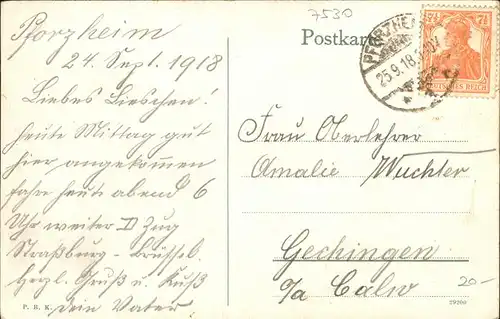 Pforzheim
24. Sept. 1918
Liebes Lieschen!
heute Mittag gut
hier angekommen
fahre heute abend 6
Uhr weiter D Zug
Straßburg - Brüssel.
Herzl. Gruß u. Kuß
Dein Vater
P. R. K.
7530
Postkarte
PFORZHEIM
25.9.18.
7½ 7½
DEUTSCHES REICH
Frau Oberlehrer
Amalie Wuchter
Gechingen
o/a Calw
20-
29200